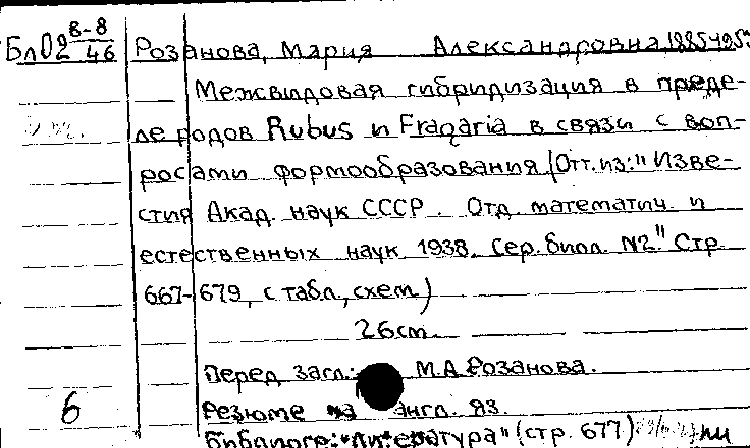 БлО2 В-8/46 Розанова, Мария Александровна, 1885-1957
Межвидовая гибридизация в преде-
ле родов Rubus и Fragaria в связи с воп-
росами формообразования (Отт. из: "Изве-
стия Акад. наук СССР. Отд. математич. и
естественных наук, 1938. Сер. биол. №2" Стр.
667-679, с табл., схем.)
26 cm.
Перед загл.: М.А. Розанова.
6 Резюме на англ. яз.
Библиогр.: "Литература" (стр. 677)